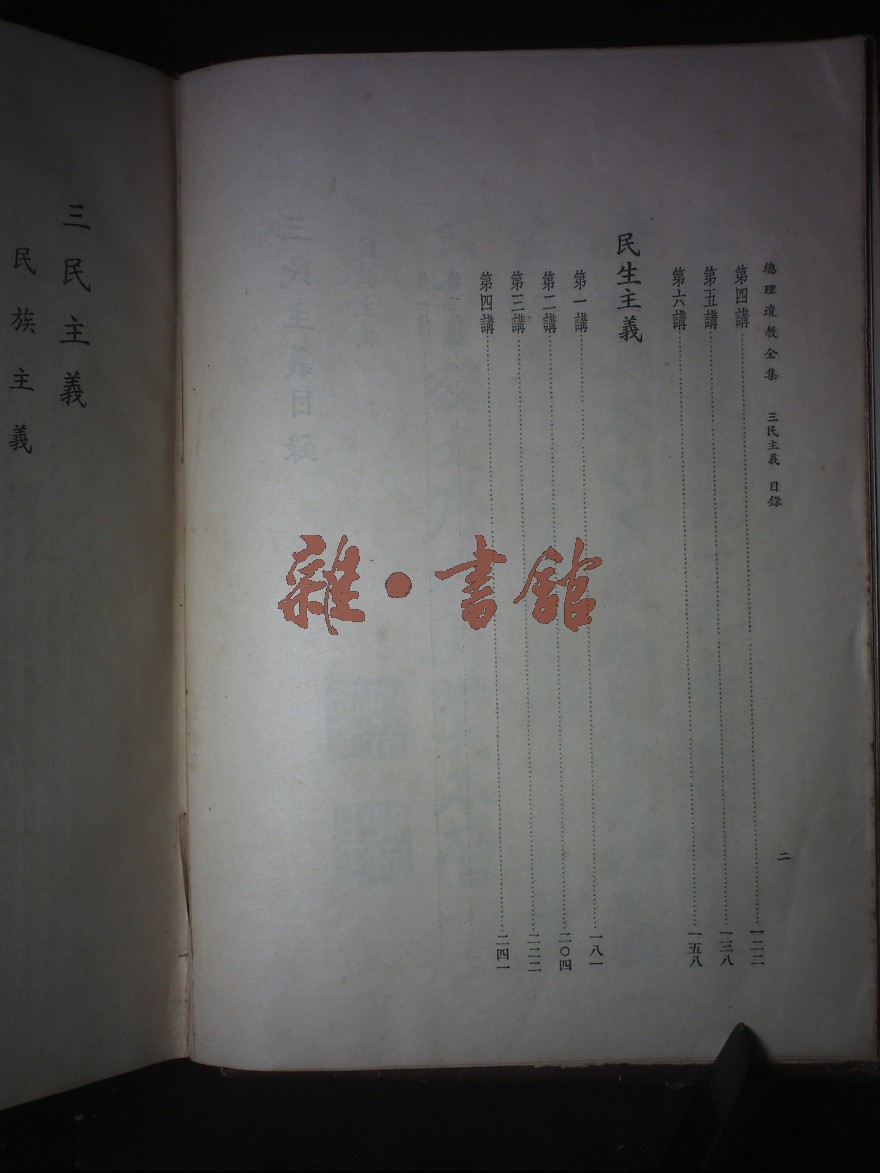 總理遺教全集 三民主義 目錄
二
第四講……一二二
第五講……一三八
第六講……一五八
民生主義
第一講……一八一
第二講……二〇四
第三講……二二二
第四講……二四一
三民主義
民族主義
雜·書館